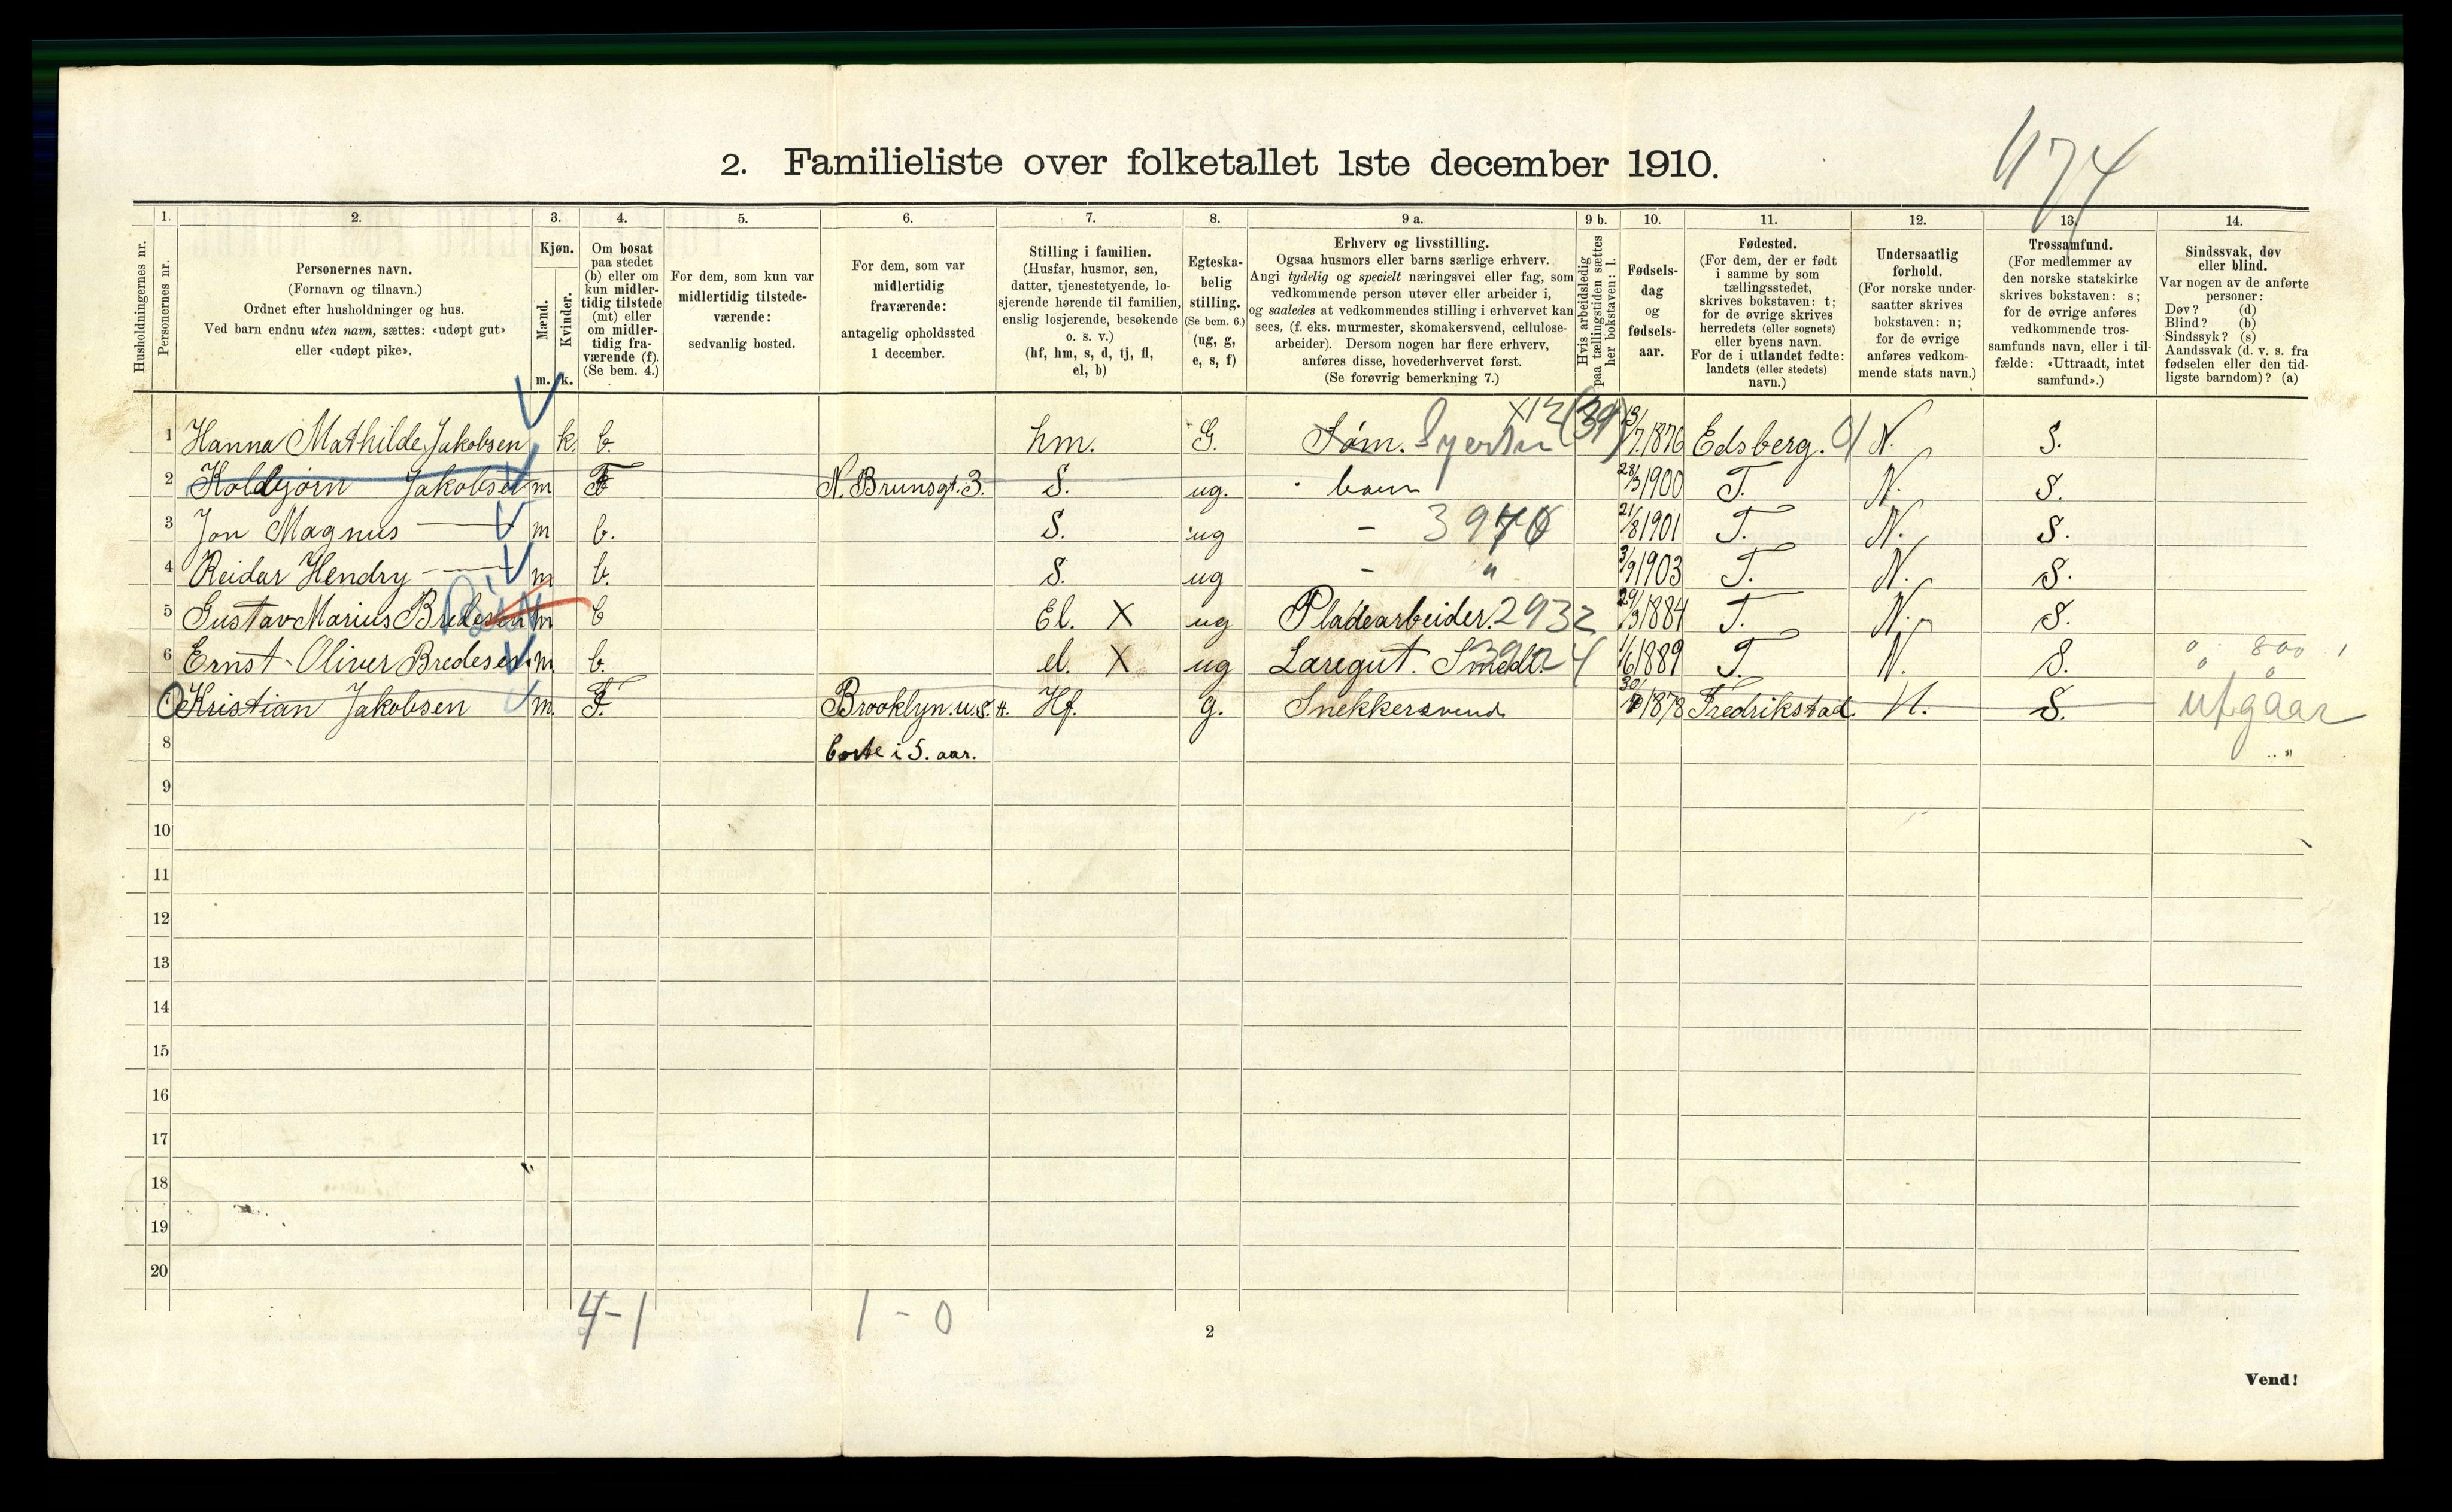 1174
2. Familieliste over folketallet 1ste december 1910.
Husholdningernes nr.
1. Personernes nr.
2. Personernes navn.
(Fornavn og tilnavn.)
Ordnet efter husholdninger og hus.
Ved barn endnu uten navn, sættes: «udøpt gut»
eller «udøpt pike».
3. Kjøn.
Mænd. m.
Kvinder. k.
4. Om bosat
paa stedet
(b) eller om
kun midler-
tidig tilstede
(mt) eller
om midler-
tidig fra-
værende (f).
(Se bem. 4.)
5. For dem, som kun var
midlertidig tilstede-
værende:
sedvanlig bosted.
6. For dem, som var
midlertidig
fraværende:
antagelig opholdssted
1 december.
7. Stilling i familien.
(Husfar, husmor, søn,
datter, tjenestetyende, lo-
sjerende hørende til familien,
enslig losjerende, besøkende
o. s. v.)
(hf, hm, s, d, tj, fl,
el, b)
8. Egteska-
belig
stilling.
(Se bem. 6.)
(ug, g,
e, s, f)
9 a. Erhverv og livsstilling.
Ogsaa husmors eller barns særlige erhverv.
Angi tydelig og specielt næringsvei eller fag, som
vedkommende person utøver eller arbeider i,
og saaledes at vedkommendes stilling i erhvervet kan
sees, (f. eks. murmester, skomakersvend, cellulose-
arbeider). Dersom nogen har flere erhverv,
anføres disse, hovederhvervet først.
(Se forøvrig bemerkning 7.)
9 b. Hvis arbeidsledig
paa tællingstiden sættes
her bokstaven: l.
10. Fødsels-
dag
og
fødsels-
aar.
11. Fødested.
(For dem, der er født
i samme by som
tællingsstedet,
skrives bokstaven: t;
for de øvrige skrives
herredets (eller sognets)
eller byens navn.
For de i utlandet fødte:
landets (eller stedets)
navn.)
12. Undersaatlig
forhold.
(For norske under-
saatter skrives
bokstaven: n;
for de øvrige
anføres vedkom-
mende stats navn.)
13. Trossamfund.
(For medlemmer av
den norske statskirke
skrives bokstaven: s;
for de øvrige anføres
vedkommende tros-
samfunds navn, eller i til-
fælde: «Uttraadt, intet
samfund».)
14. Sindssvak, døv
eller blind.
Var nogen av de anførte
personer:
Døv? (d)
Blind? (b)
Sindssyk? (s)
Aandssvak (d. v. s. fra
fødselen eller den tid-
ligste barndom)? (a)
1 Hanna Mathilde Jakobsen k. b. hm. G. Søm. X12 (39) 13/7 1876 Edsberg. 01 N. S.
2 Koldbjørn Jakobsen m F N. Brunsgt. 3. S. ug. barn 28/3 1900 T. N. S.
3 Jon Magnus — m b. S. ug - 3976 21/8 1901 T. N. S.
4 Reidar Hendry — m b. S. ug - " 3/9 1903 T. N. S.
5 Gustav Marius Bredesen m b El. X ug Pladearbeider. 2932 29/3 1884 T. N. S.
6 Ernst Oliver Bredesen. m. b. el. X ug Læregut. Smedt. 1/6 1889 T. N. S. 800
1 Kristian Jakobsen m. F. Brooklyn. u.S.A. Hf. g. Snekkersvend 30/7 1878 Fredrikstad. N. S. utgaar
8 borte i 5. aar. "
9
10
11
12
13
14
15
16
17
18
19
20
4-1 1-0
2
Vend!